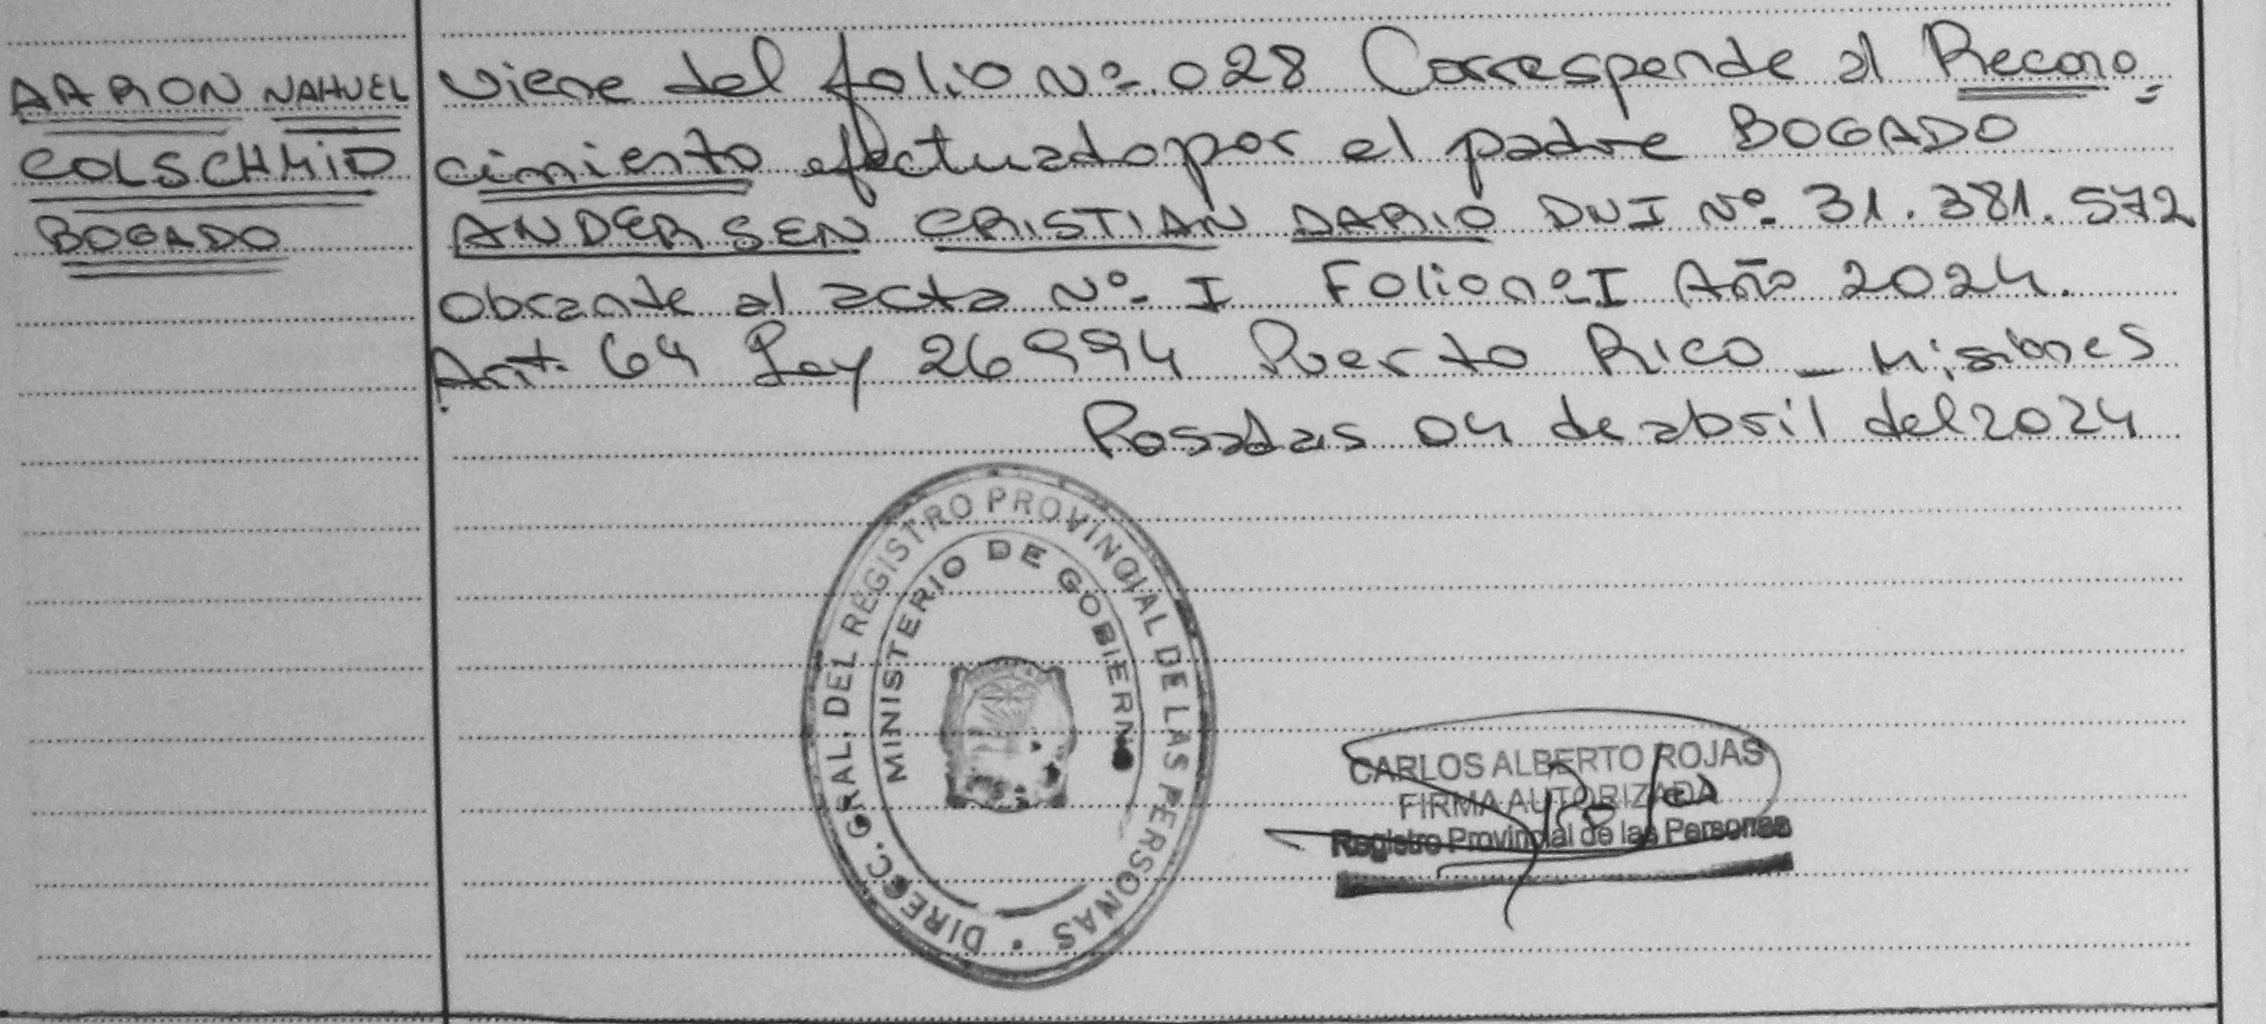 AARON NAHUEL
COLSCHMID
BOGADO
Viene del folio Nº 028 Corresponde al Recono=
cimiento efectuado por el padre BOGADO
ANDERSEN CRISTIAN DARIO DNI Nº 31.381.572
obrante al acta Nº I Folio nº I Año 2024.
Art. 64 Ley 26994 Puerto Rico - Misiones
Posadas 04 de abril del 2024
DIRECC. GRAL. DEL REGISTRO PROVINCIAL DE LAS PERSONAS
MINISTERIO DE GOBIERNO
CARLOS ALBERTO ROJAS
FIRMA AUTORIZADA
Registro Provincial de las Personas